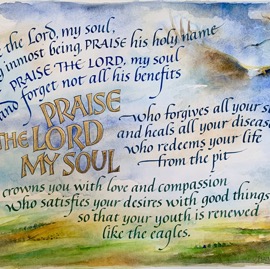 the Lord, my soul,
inmost being, PRAISE his holy name
PRAISE THE LORD, my soul
and forget not all his benefits
PRAISE
THE LORD
MY SOUL
who forgives all your
and heals all your disease
who redeems your life
from the pit
crowns you with love and compassion
who satisfies your desires with good things
so that your youth is renewed
like the eagles.